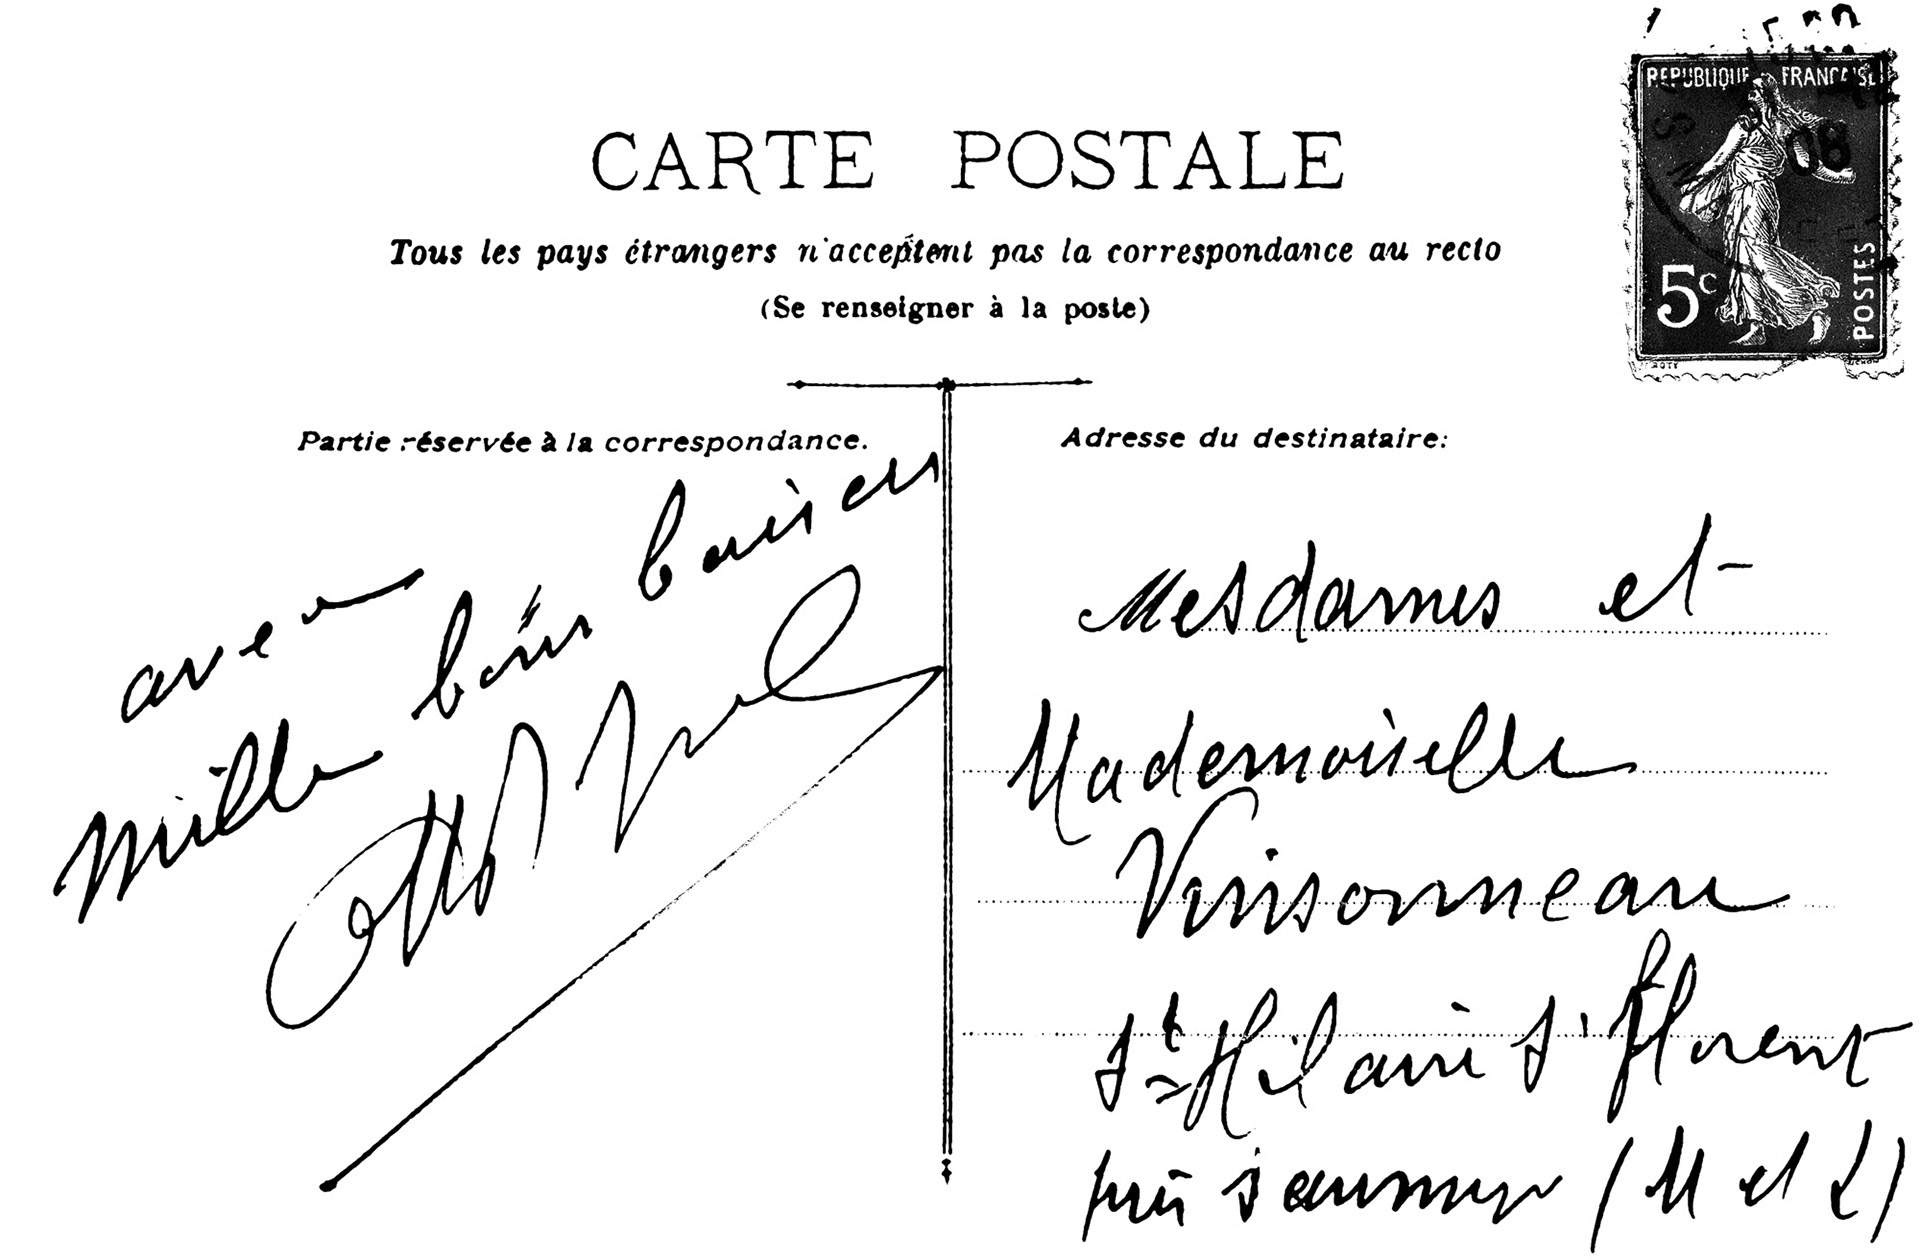 REPUBLIQUE FRANCAISE
08
5c
POSTES
CARTE POSTALE
Tous les pays étrangers n'acceptent pas la correspondance au recto
(Se renseigner à la poste)
Partie réservée à la correspondance.
avec
mille bons baisers
Adresse du destinataire:
Mesdames et
Mademoiselle
Vinsonneau
St Hilaire St Florent
près Saumur (M et L)